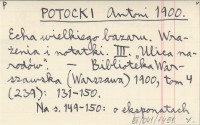 POTOCKI Antoni 1900.
Echa wielkiego bazaru. Wra-
żenia i notatki. III. "Ulica na-
rodów". - Biblioteka War-
szawska (Warszawa) 1900, tom 4
(239): 131-150.
Na s. 149-150: o eksponatach